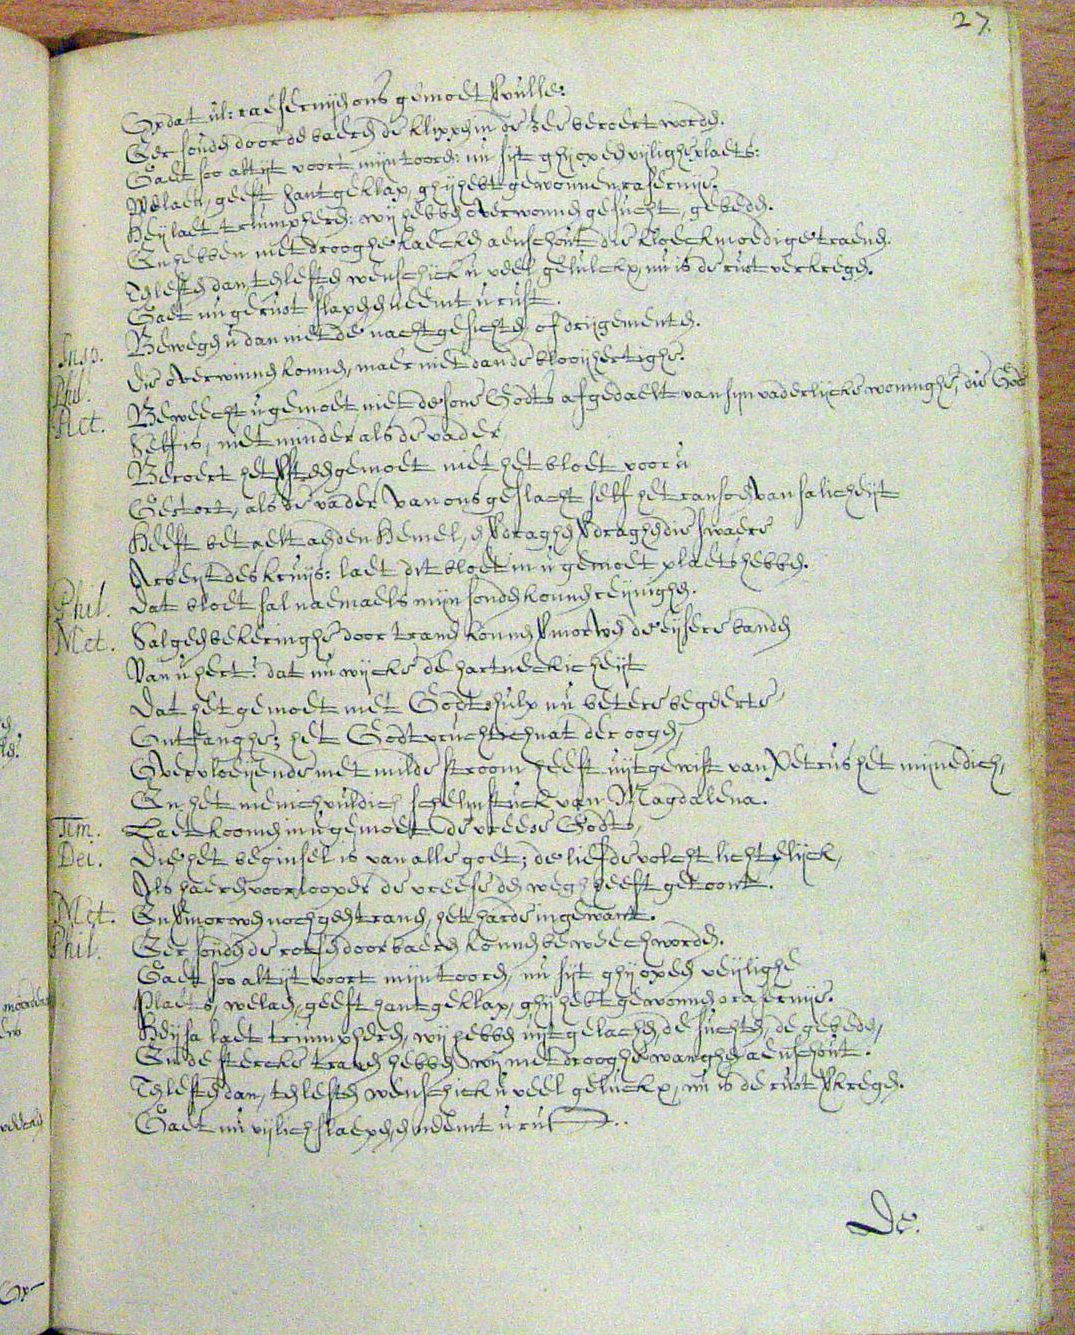 27.
Opdat ul: raesernijen ons gemoet vervulle:
Eer souden door de baeren de klippen in de zee beroert worden.
Gaet soo altijt voort mijn toorn: nu sijt ghij op een vijlighe plaets:
Welaen, geeft hantgeklap, ghij hebt gewonnen rasernije.
Heij laet triumpheren: wij hebben overwonnen gesucht, gebeden.
En hebben met drooghe kaecken aenschout die kloeckmoedige traenen.
Ten lesten dan, ten lesten wensch ick u veel gelucks, nu is de rust verkregen.
Gaet nu gerust slapen en neemt u rust.
Bewegen u dan niet de nachtgesichten of drijgementen.
Phil. Die overwinnen konnen, maer niet dan de bloohertighe.
Act. Beweecht u gemoet niet de sone Godts afgedaelt van sijn vaderlijcke woninghe, die Godt
Selfs is, niet minder als de vader,
Beroert het steenen gemoet niet het bloet voor u
Gestort, als de vader van ons geslacht self het ransoen van salicheijt
Heeft betaelt aen den Hemel, en verdraghen die swaere
Arbeijt des kruijs: laet dit bloet in u gemoet plaets hebben.
Phil. Dat bloet sal naemaels mijn sonden konnen reijnighen.
Met. Sal geen bekeringhe door tranen konnen vermorwen de eijsere banden
Van u hert? dat nu wijcke de hartneckicheijt
Dat het gemoet met Godts hulp nu betere begeerte
Ontfanghe; het Godtvruchtich nat der oogen,
Overvloeijende met milde stroom heeft uijtgewist van Petrus het mijnedich,
En het menichvuldich schelmstuck van Magdalena.
Tim. Laet koomen in u gemoet de vreese Godts,
Dei. Die het beginsel is van alle goet; de liefde volcht lichtelijck,
Als haer voorlooper de vreese den wegh heeft getoont.
Met. En vermorwen noch geen tranen, het harde ingewant.
Phil. Eer souden de rotsen door baeren konnen beweecht worden.
Gaet soo altijt voort mijn toorn, nu sijt ghij op een veijlighe
Plaets, welaen, geeft hantgeklap, ghij hebt gewonnen o rasernije.
Heijsa laet triumpheren, wij hebben uijtgelachen, de suchten, de gebeden,
En de stercke tranen hebben wij met drooghe wanghen aenschout.
Ten lesten dan, ten lesten wensch ick u veel gelucks, nu is de rust verkregen.
Gaet nu vijlich slaepen, en neemt u rust.
De.